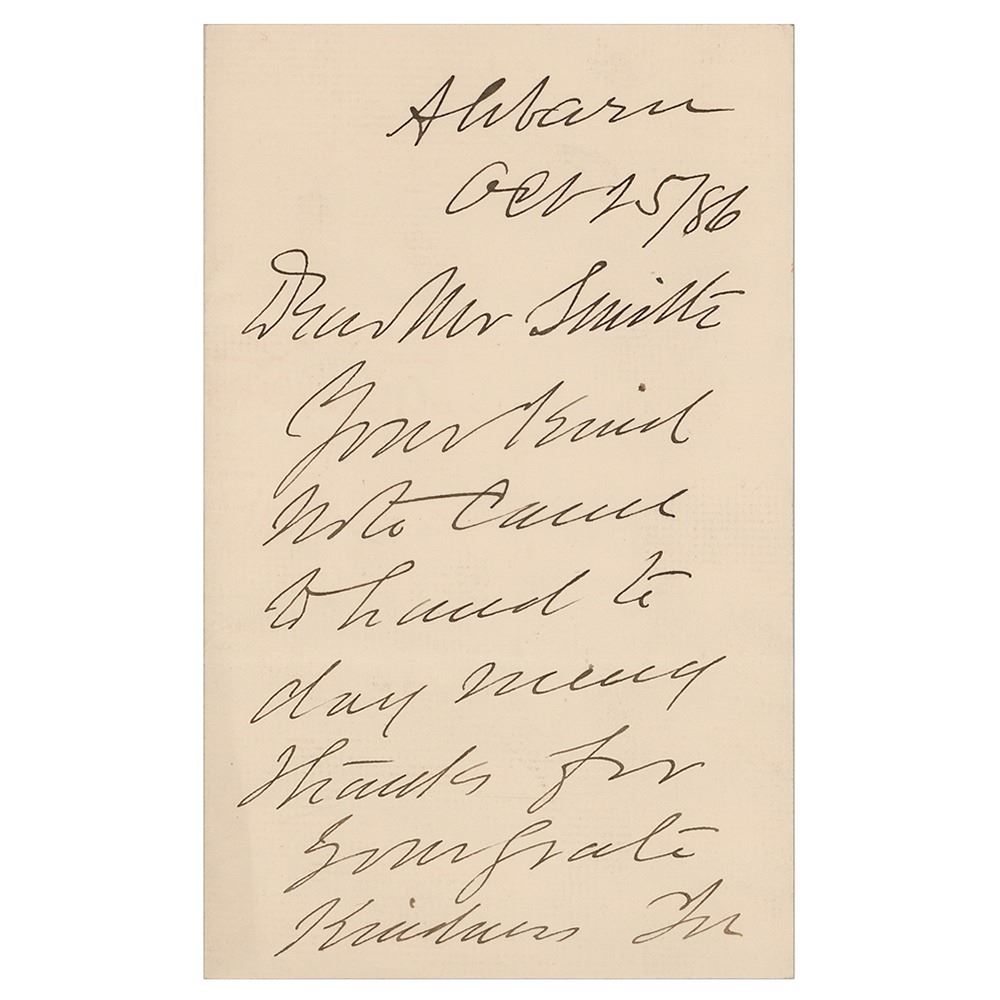 Oct 25/86
Dear Mr Smith
Your Kind
Note Came
to hand to
day meny
thanks for
your grate
Kindness In